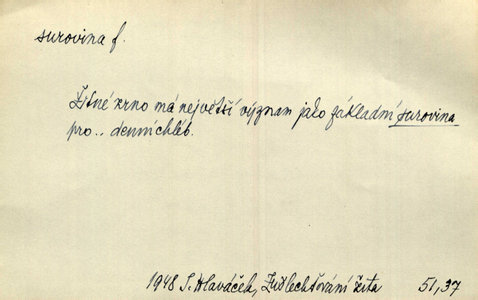 surovina f.
Žitné zrno má největší význam jako základní surovina
pro .. denní chléb.
1948 S. Hlaváček, Zušlechťování žita 51,37